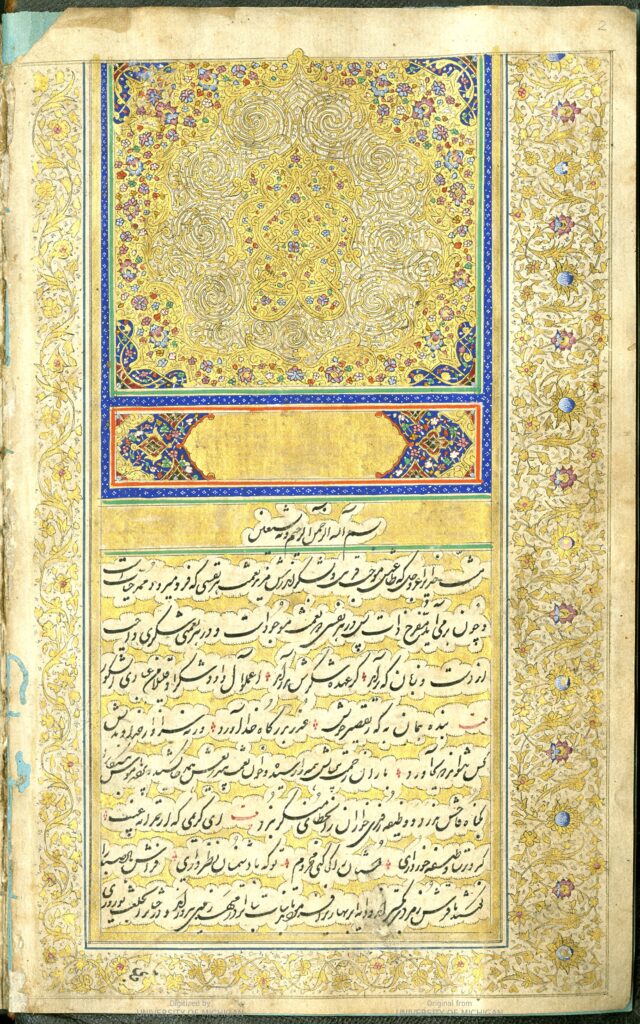 2
بسم الله الرحمن الرحیم و به نستعین
منت خدایرا عز و جل که طاعتش موجب قربتست و بشکر اندرش مزید نعمت هر نفسی که فرو میرود ممد حیاتست
و چون بر می آید مفرح ذات پس در هر نفسی دو نعمت موجودست و در هر نعمتی شکری واجب
از دست و زبان که برآید کز عهده شکرش بدر آید اعملوا آل داود شکرا و قلیل من عبادی الشکور
بنده همان به که ز تقصیر خویش عذر بدرگاه خدا آورد ورنه سزاوار خداوندیش
کس نتواند که بجا آورد باران رحمت بی حسابش همه را رسیده و خوان نعمت بیدریغش همه جا کشیده پرده ناموس بندگان
بگناه فاحش ندرد و وظیفه روزی خواران را بخطای منکر نبرد ای کریمی که از خزانه غیب
گبر و ترسا وظیفه خور داری دوستان را کجا کنی محروم تو که با دشمنان نظر داری فراش باد صبا را
گفته تا فرش زمردین بگسترد و دایه ابر بهاری را فرموده تا بنات نبات را در مهد زمین بپرورد و درختان را بخلعت نوروزی
Digitized by
UNIVERSITY OF MICHIGAN
Original from
UNIVERSITY OF MICHIGAN